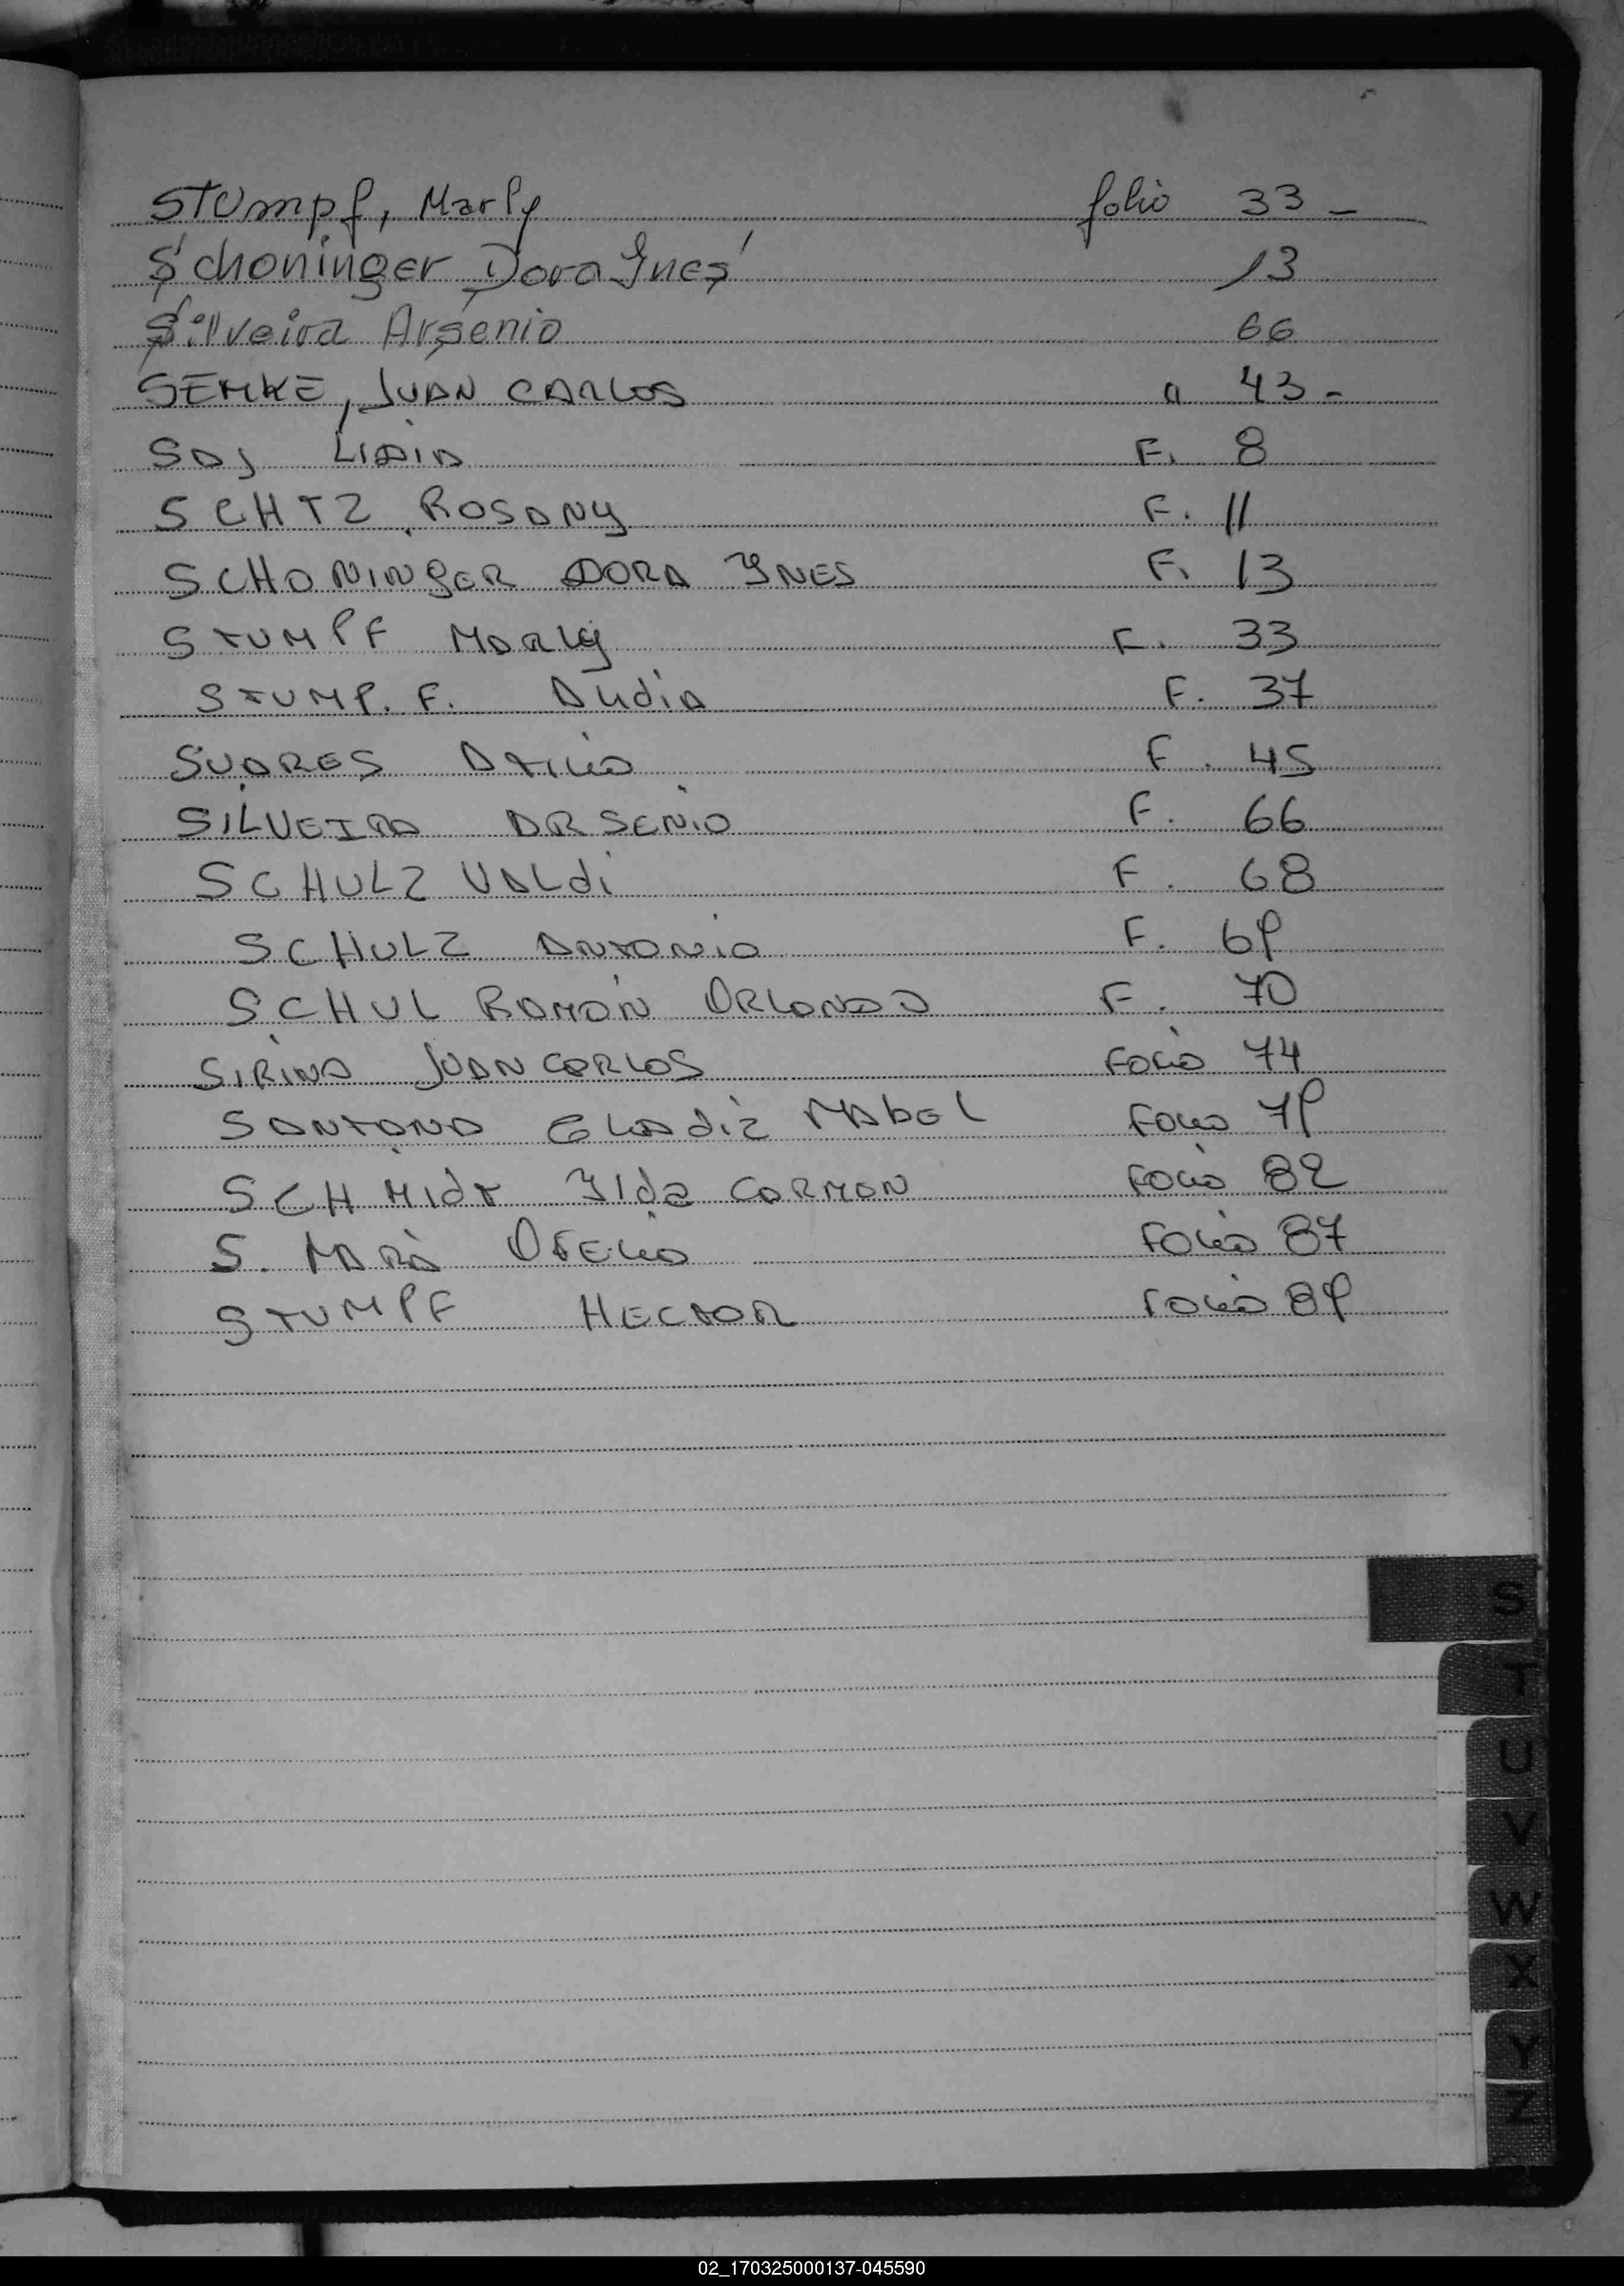 Stumpf, Marly folio 33 -
Schoninger Dora Ynes 13
Silveira Arsenio 66
SEMKE, JUAN CARLOS " 43 -
SAS LIDIA F. 8
SCHTZ ROSANY F. 11
SCHONINGER DORA YNES F. 13
STUMPF MARLY F. 33
STUMP. F. Audia F. 37
SUARES ATILIO F. 45
SILVEIRA ARSENIO F. 66
SCHULZ VALdi F. 68
SCHULZ ANTONIO F. 69
SCHUL RAMON ORLANDO F. 70
SIRINA JUAN CARLOS FOLIO 74
SANTANA GLADIZ MABEL FOLIO 79
SCHMIdT YIda CARMAN FOLIO 82
S. MARA OFELIA FOLIO 87
STUMPF HECTOR FOLIO 89
S
T
U
V
W
X
Y
Z
02_170325000137-045590